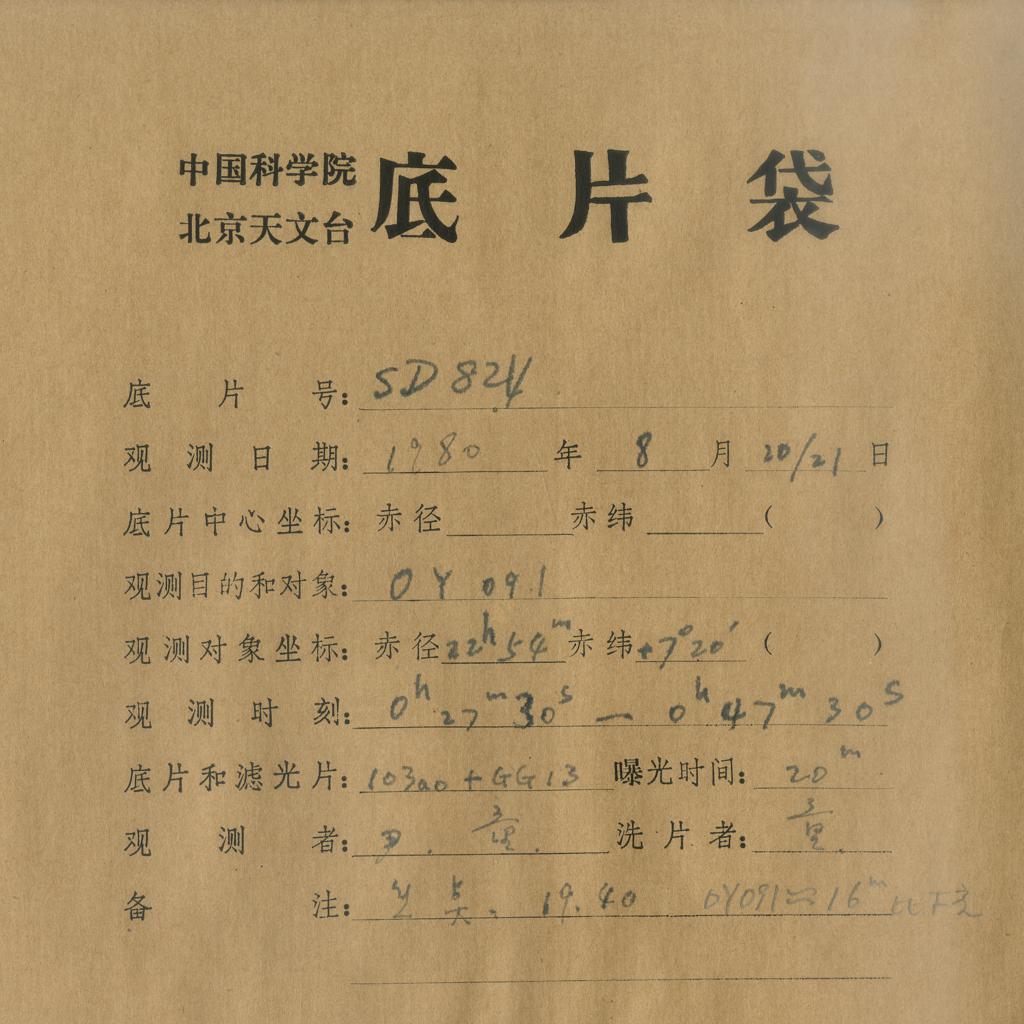 中国科学院
北京天文台 底片袋
底片号: SD 824
观测日期: 1980 年 8 月 20/21 日
底片中心坐标: 赤径 赤纬 ( )
观测目的和对象: OY 091
观测对象坐标: 赤径 22h54m 赤纬 +7°20′ ( )
观测时刻: 0h27m30s — 0h47m30s
底片和滤光片: 103ao+GG13 曝光时间: 20m
观测者: 尹. 童. 洗片者: 童.
备注: 19.40 OY091 16m